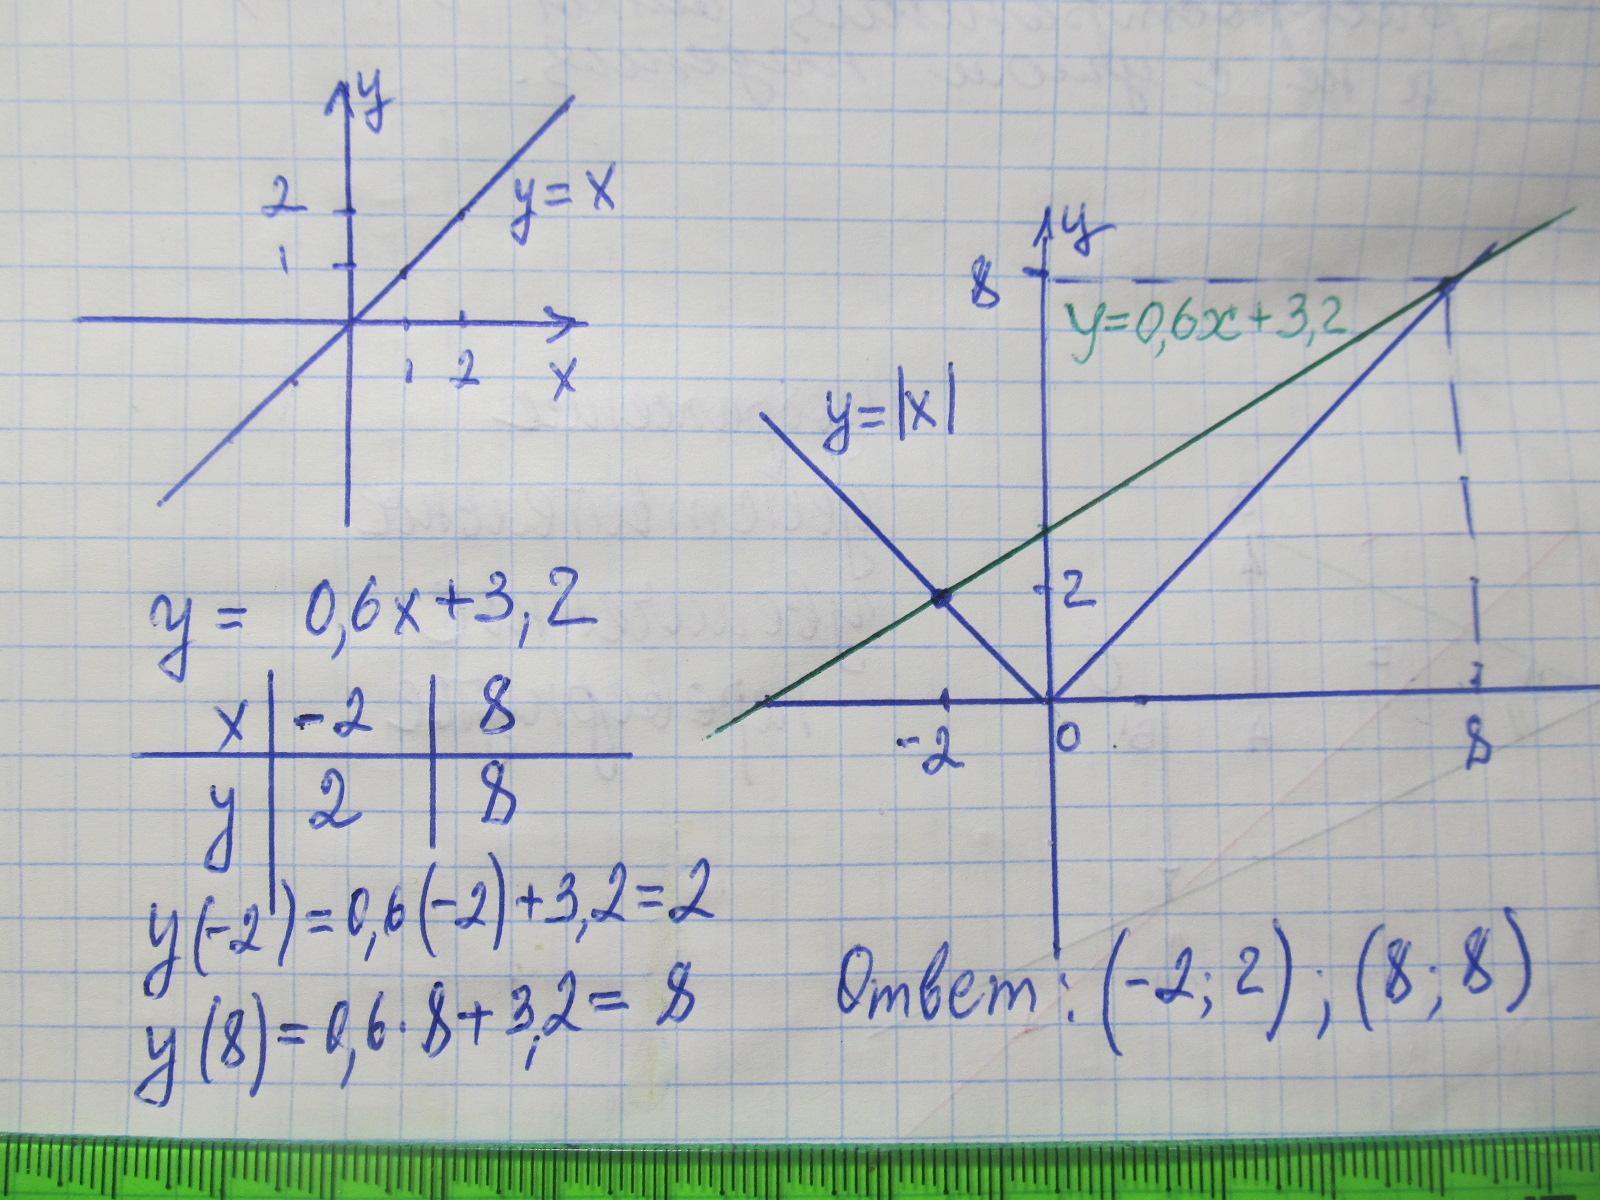 y
2
1
y = x
1 2 x
y = 0,6x + 3,2
x | -2 | 8
y | 2 | 8
y(-2) = 0,6(-2) + 3,2 = 2
y(8) = 0,6 · 8 + 3,2 = 8
y
8
y=0,6x+3,2
y=|x|
2
-2 0 8
Ответ: (-2; 2); (8; 8)